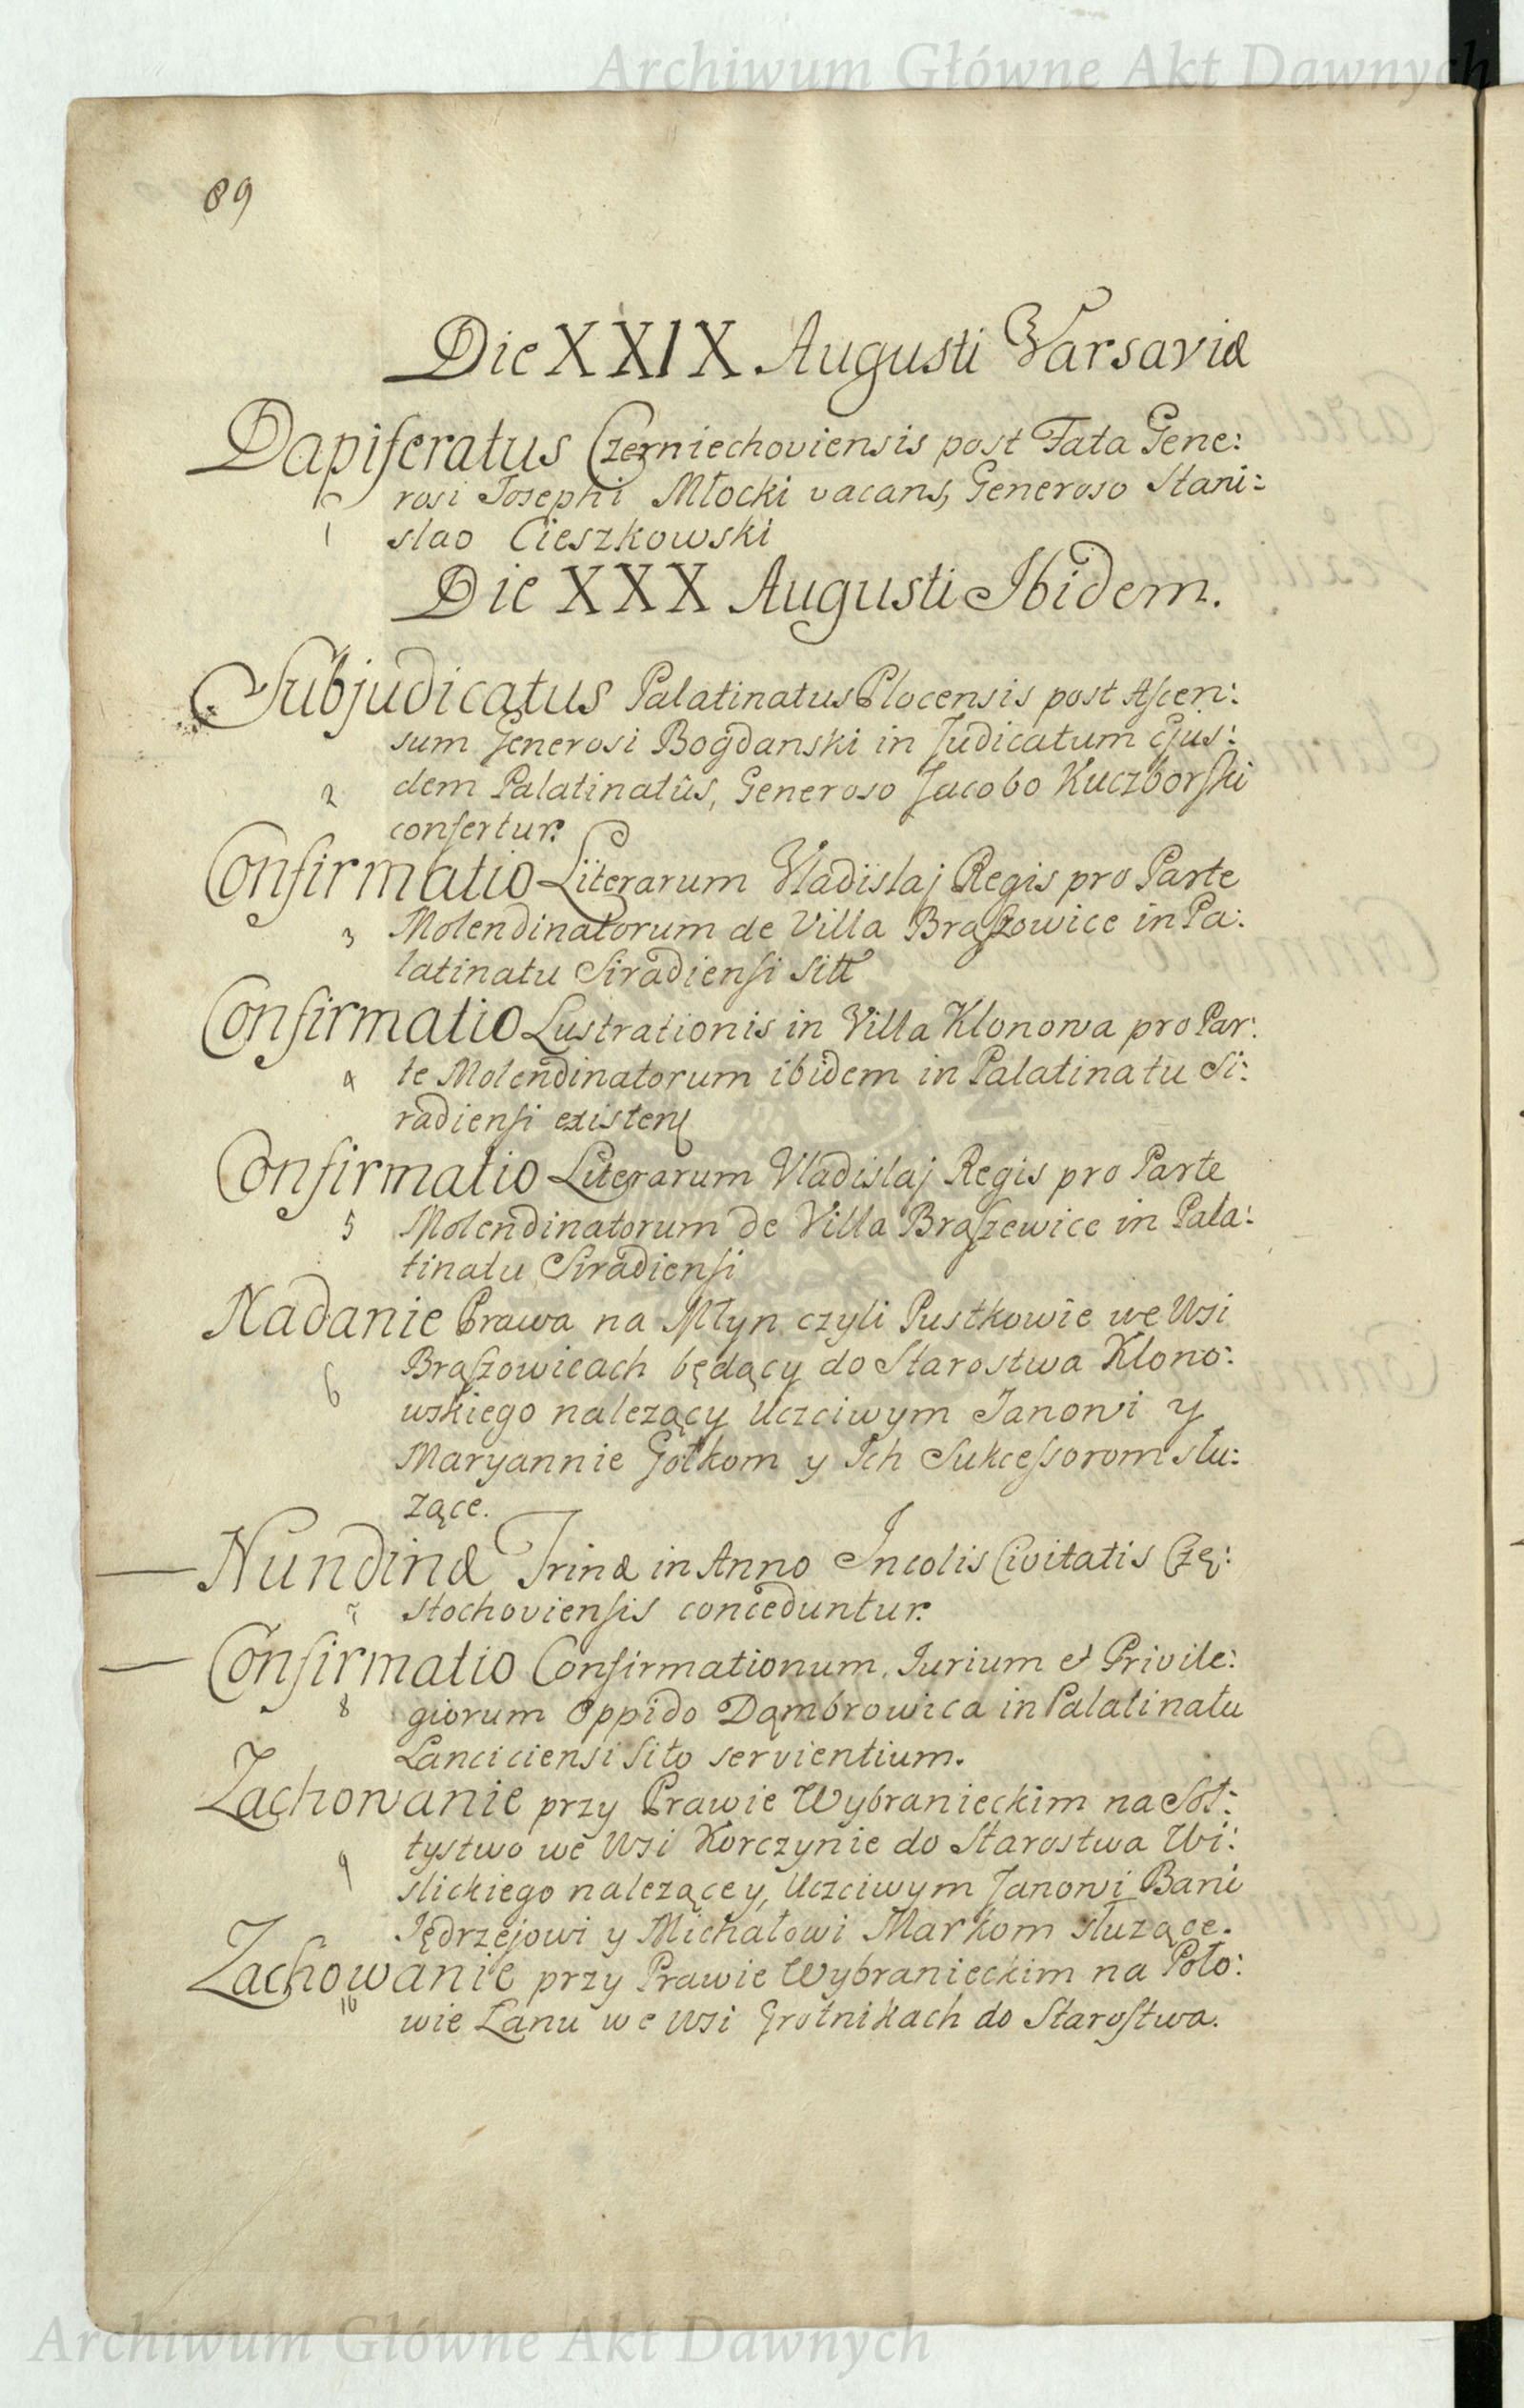 Archiwum Główne Akt Dawnych
89
Die XXIX Augusti Varsaviæ
Dapiferatus Czerniechoviensis post Fata Gene:
rosi Josephi Młocki vacans, Generoso Stani:
1 slao Cieszkowski
Die XXX Augusti Ibidem.
Subjudicatus Palatinatus Plocensis post Ascen:
sum Generosi Bogdanski in Judicatum Ejus:
2 dem Palatinatûs, Generoso Jacobo Kuczborski
confertur.
Confirmatio Literarum Vladislaj Regis pro Parte
3 Molendinatorum de Villa Braszowice in Pa:
latinatu Siradiensi Sitt
Confirmatio Lustrationis in Villa Klonowa pro Par:
4 te Molendinatorum ibidem in Palatinatu Si:
radiensi existen
Confirmatio Literarum Vladislaj Regis pro Parte
5 Molendinatorum de Villa Braszewice in Pala:
tinatu Siradiensi
Nadanie Prawa na Młyn czyli Pustkowie we Wsi
6 Braszowicach będący do Starostwa Klono:
wskiego nalezący Uczciwym Janowi y
Maryannie Gołkom y Ich Sukcessorom słu:
zące.
Nundinæ Trinæ in Anno Incolis Civitatis Czę:
7 stochoviensis conceduntur.
Confirmatio Confirmationum, Jurium et Privile:
8 giorum Oppido Dąmbrowica in Palatinatu
Lanciciensi Sito servientium.
Zachowanie przy Prawie Wybranieckim na Soł:
9 tystwo we Wsi Korczynie do Starostwa Wi:
slickiego nalezącey, Uczciwym Janowi Bani
Jędrzejowi y Michałowi Markom słuzące.
Zachowanie przy Prawie Wybranieckim na Poło:
10 wie Lanu we Wsi Grotnikach do Starostwa.
Archiwum Główne Akt Dawnych